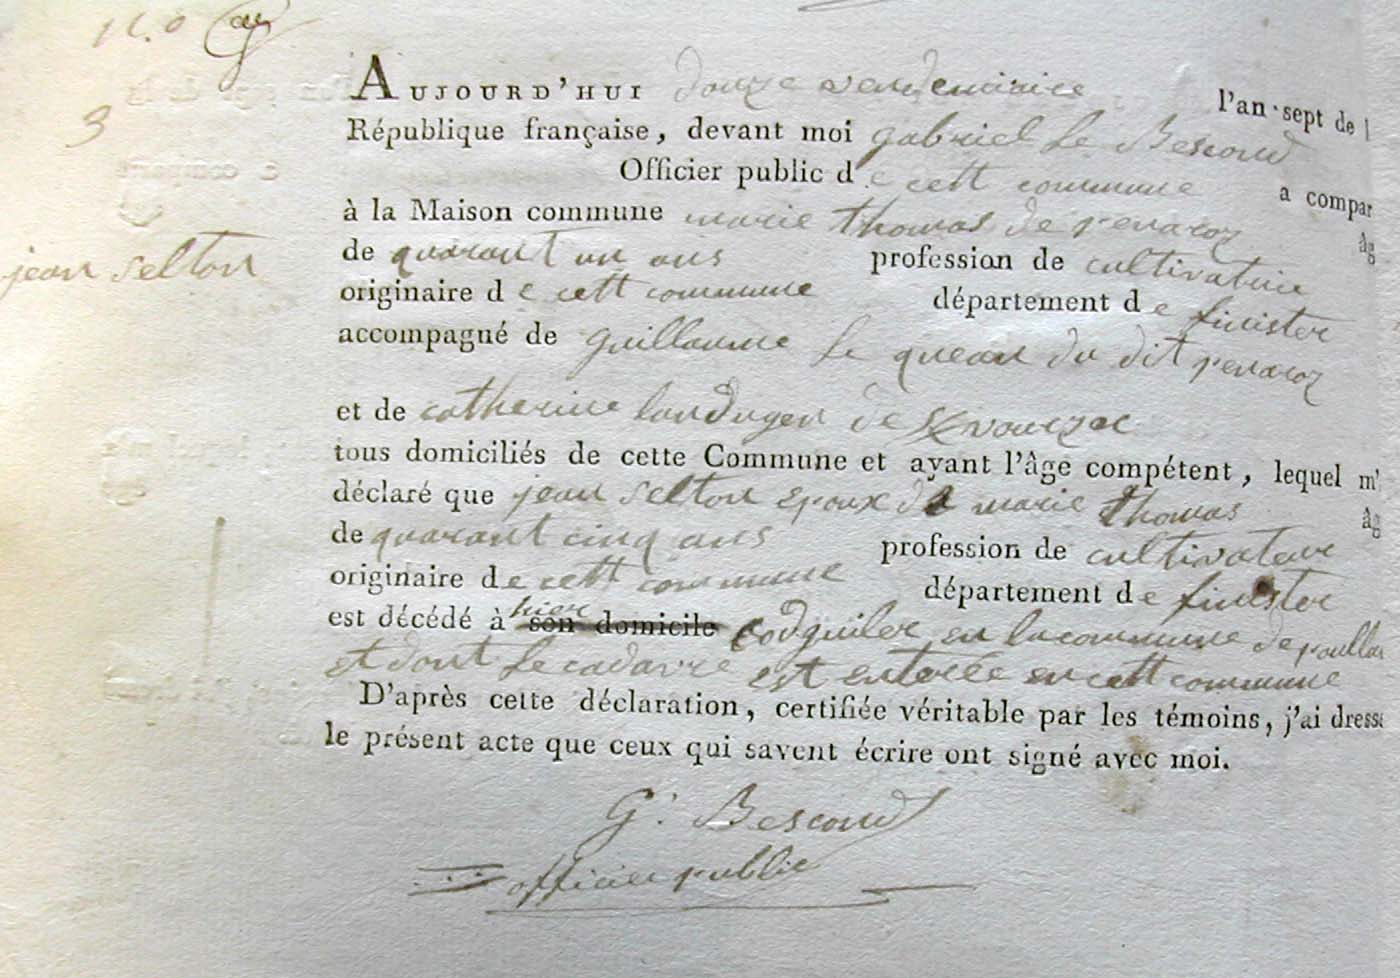 3
jean seltON
AUJOURD'HUI douze vendemiaire l'an sept de l
République française, devant moi gabriel le Bescond
Officier public de cett commune a compar
à la Maison commune marie thomas de penaroz âg
de quarant un ans profession de cultivatrice
originaire de cett commune département de finister
accompagné de guillaume le queau du dit penaroz
et de catherine landuger de
tous domiciliés de cette Commune et ayant l'âge compétent, lequel m'
déclaré que jean selton epoux de marie thomas âg
de quarant cinq ans profession de cultivateur
originaire de cett commune département de finister
est décédé à hier son domicile codguiler en la commune de poullan
et dont le cadavre est enterée en cett commune
D'après cette déclaration, certifiée véritable par les témoins, j'ai dressé
le présent acte que ceux qui savent écrire ont signé avec moi.
G. Bescond
officier public